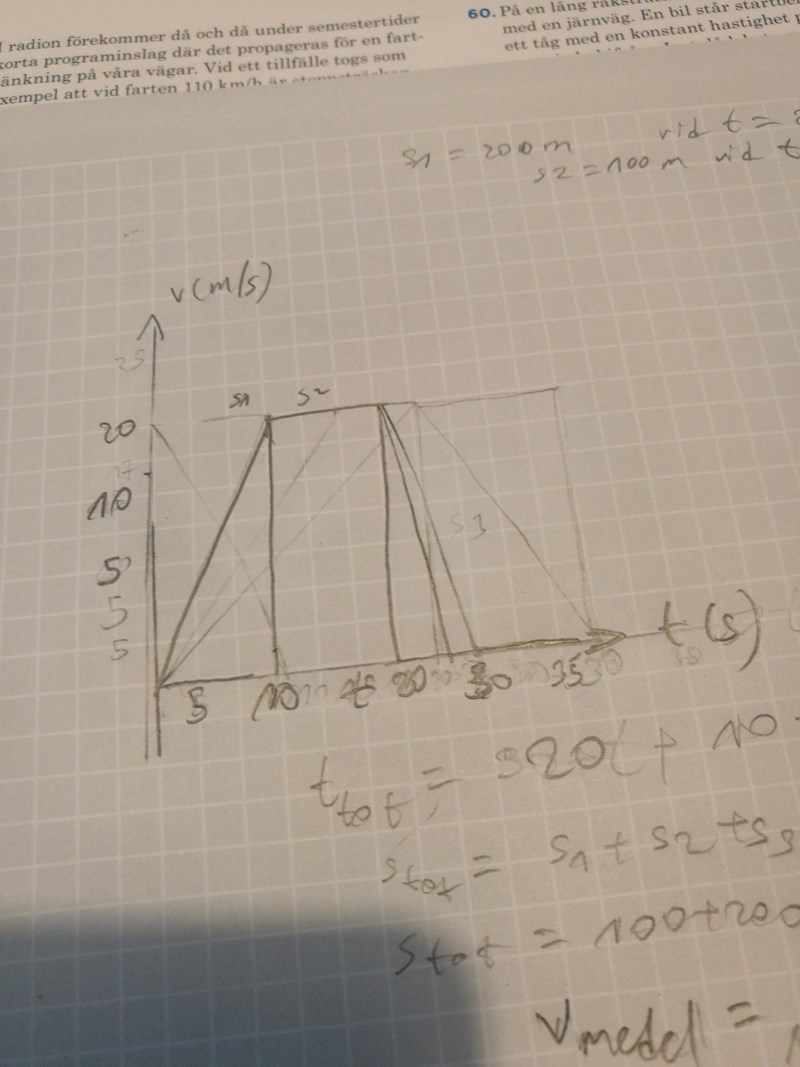 I radion förekommer då och då under semestertider
korta programinslag där det propageras för en fart-
änkning på våra vägar. Vid ett tillfälle togs som
xempel att vid farten 110 km/h är
60. På en lång
med en järnväg. En bil står
ett tåg med en konstant hastighet
s1 = 200 m vid t =
s2 = 100 m vid t
v(m/s)
25
s1 s2
20
10
s3
5
5
5
t(s)
5 10 20 30 35
t tot =
s tot = s1 + s2 + s3
s tot = 100+200
v medel =